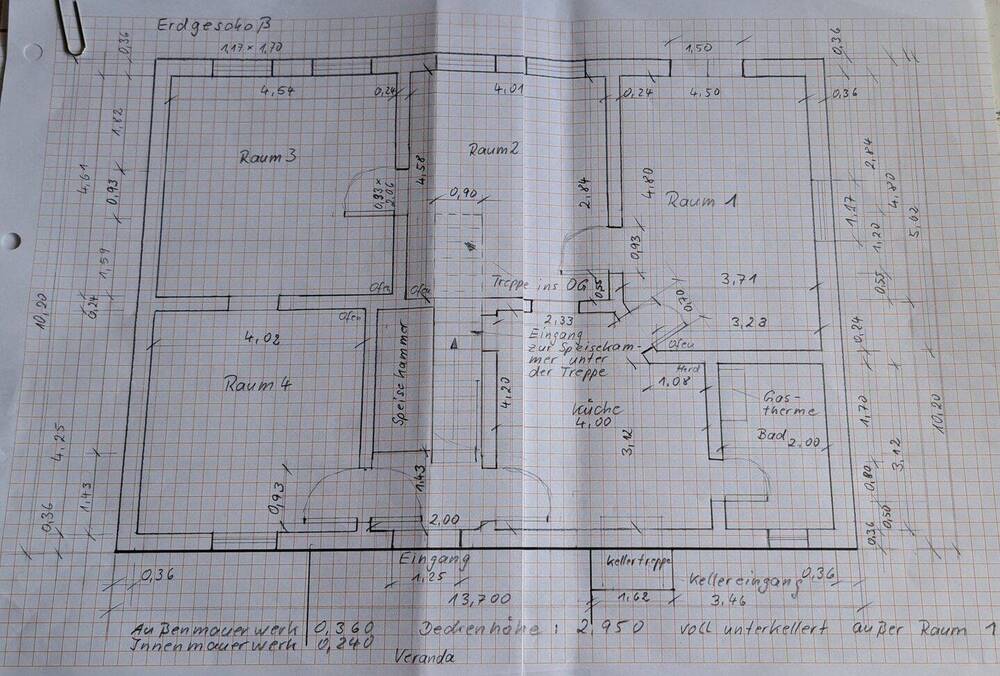 Erdgeschoß
1,17 x 1,70
1,50
0,36
0,36
4,54
0,24
4,01
0,24
4,50
0,36
1,82
Raum 3
4,58
Raum 2
2,84
4,80
Raum 1
2,84
4,80
5,62
4,61
0,93
0,93 x
2,06
0,90
1,17
1,20
1,59
0,93
Treppe ins OG
0,55
3,71
0,55
0,24
Ofen
Ofen
0,70
10,20
Ofen
2,33
3,23
0,24
4,02
Eingang
zur Speisekam-
mer unter
der Treppe
Ofen
Raum 4
Speisekammer
4,20
Herd
1,08
Küche
4,00
Gas-
therme
Bad 2,00
1,70
3,12
10,20
4,25
3,12
1,43
0,93
1,43
0,80
0,50
0,36
2,00
0,36
Eingang
1,25
Kellertreppe
Kellereingang
0,36
0,36
13,700
1,62
3,46
Außenmauerwerk 0,360
Deckenhöhe : 2,950 voll unterkellert außer Raum 1
Innenmauerwerk 0,240
Veranda